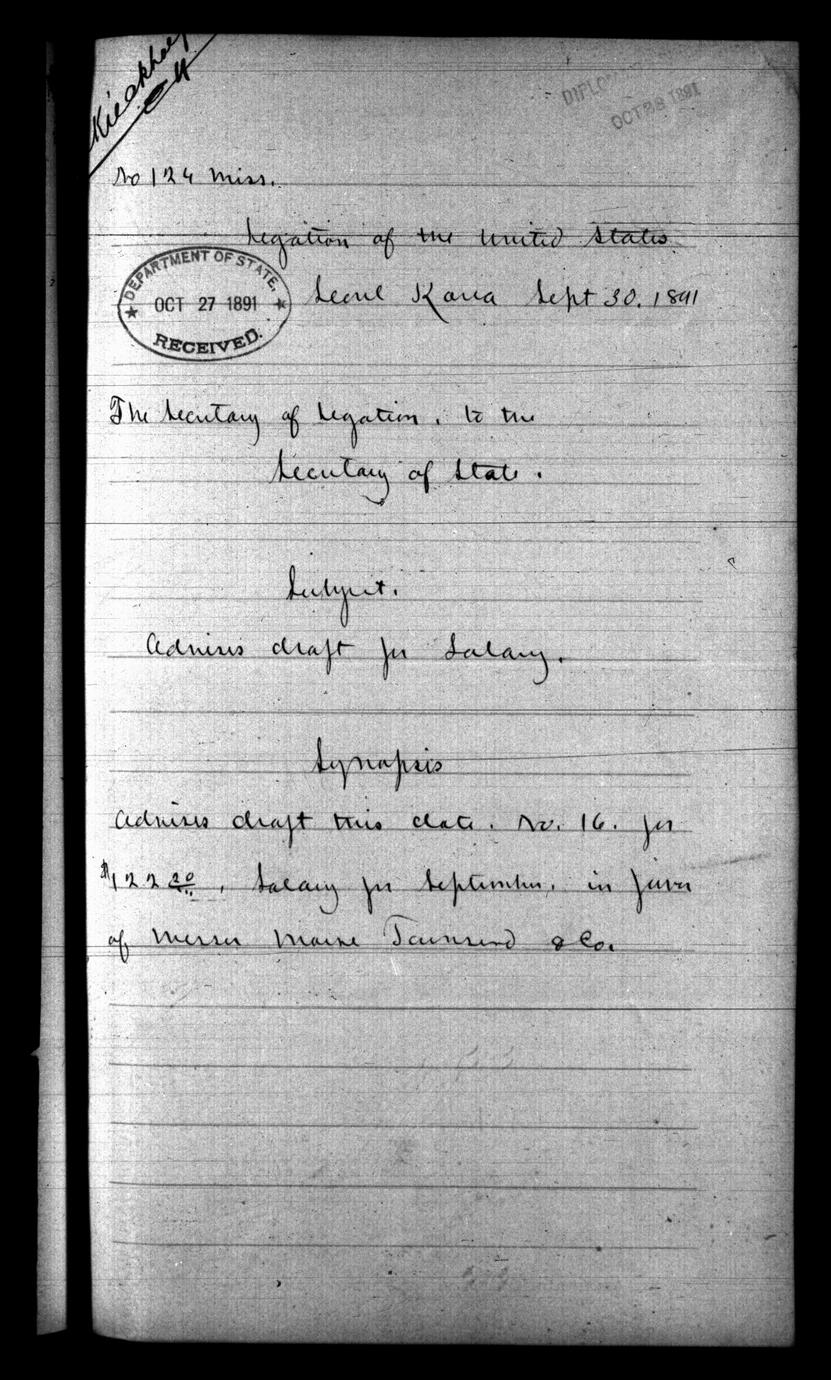 No 124 Miss.
Legation of the United States.
DEPARTMENT OF STATE,
OCT 27 1891
RECEIVED.
Seoul Korea Sept 30. 1891
OCT 28 1891
The Secretary of Legation. to the
Secretary of State.
Subject.
Advises draft for Salary.
Synopsis
Advises draft this date. No. 16. for
$122 20, Salary for September. in favor
of Messrs Morse Townsend & Co.